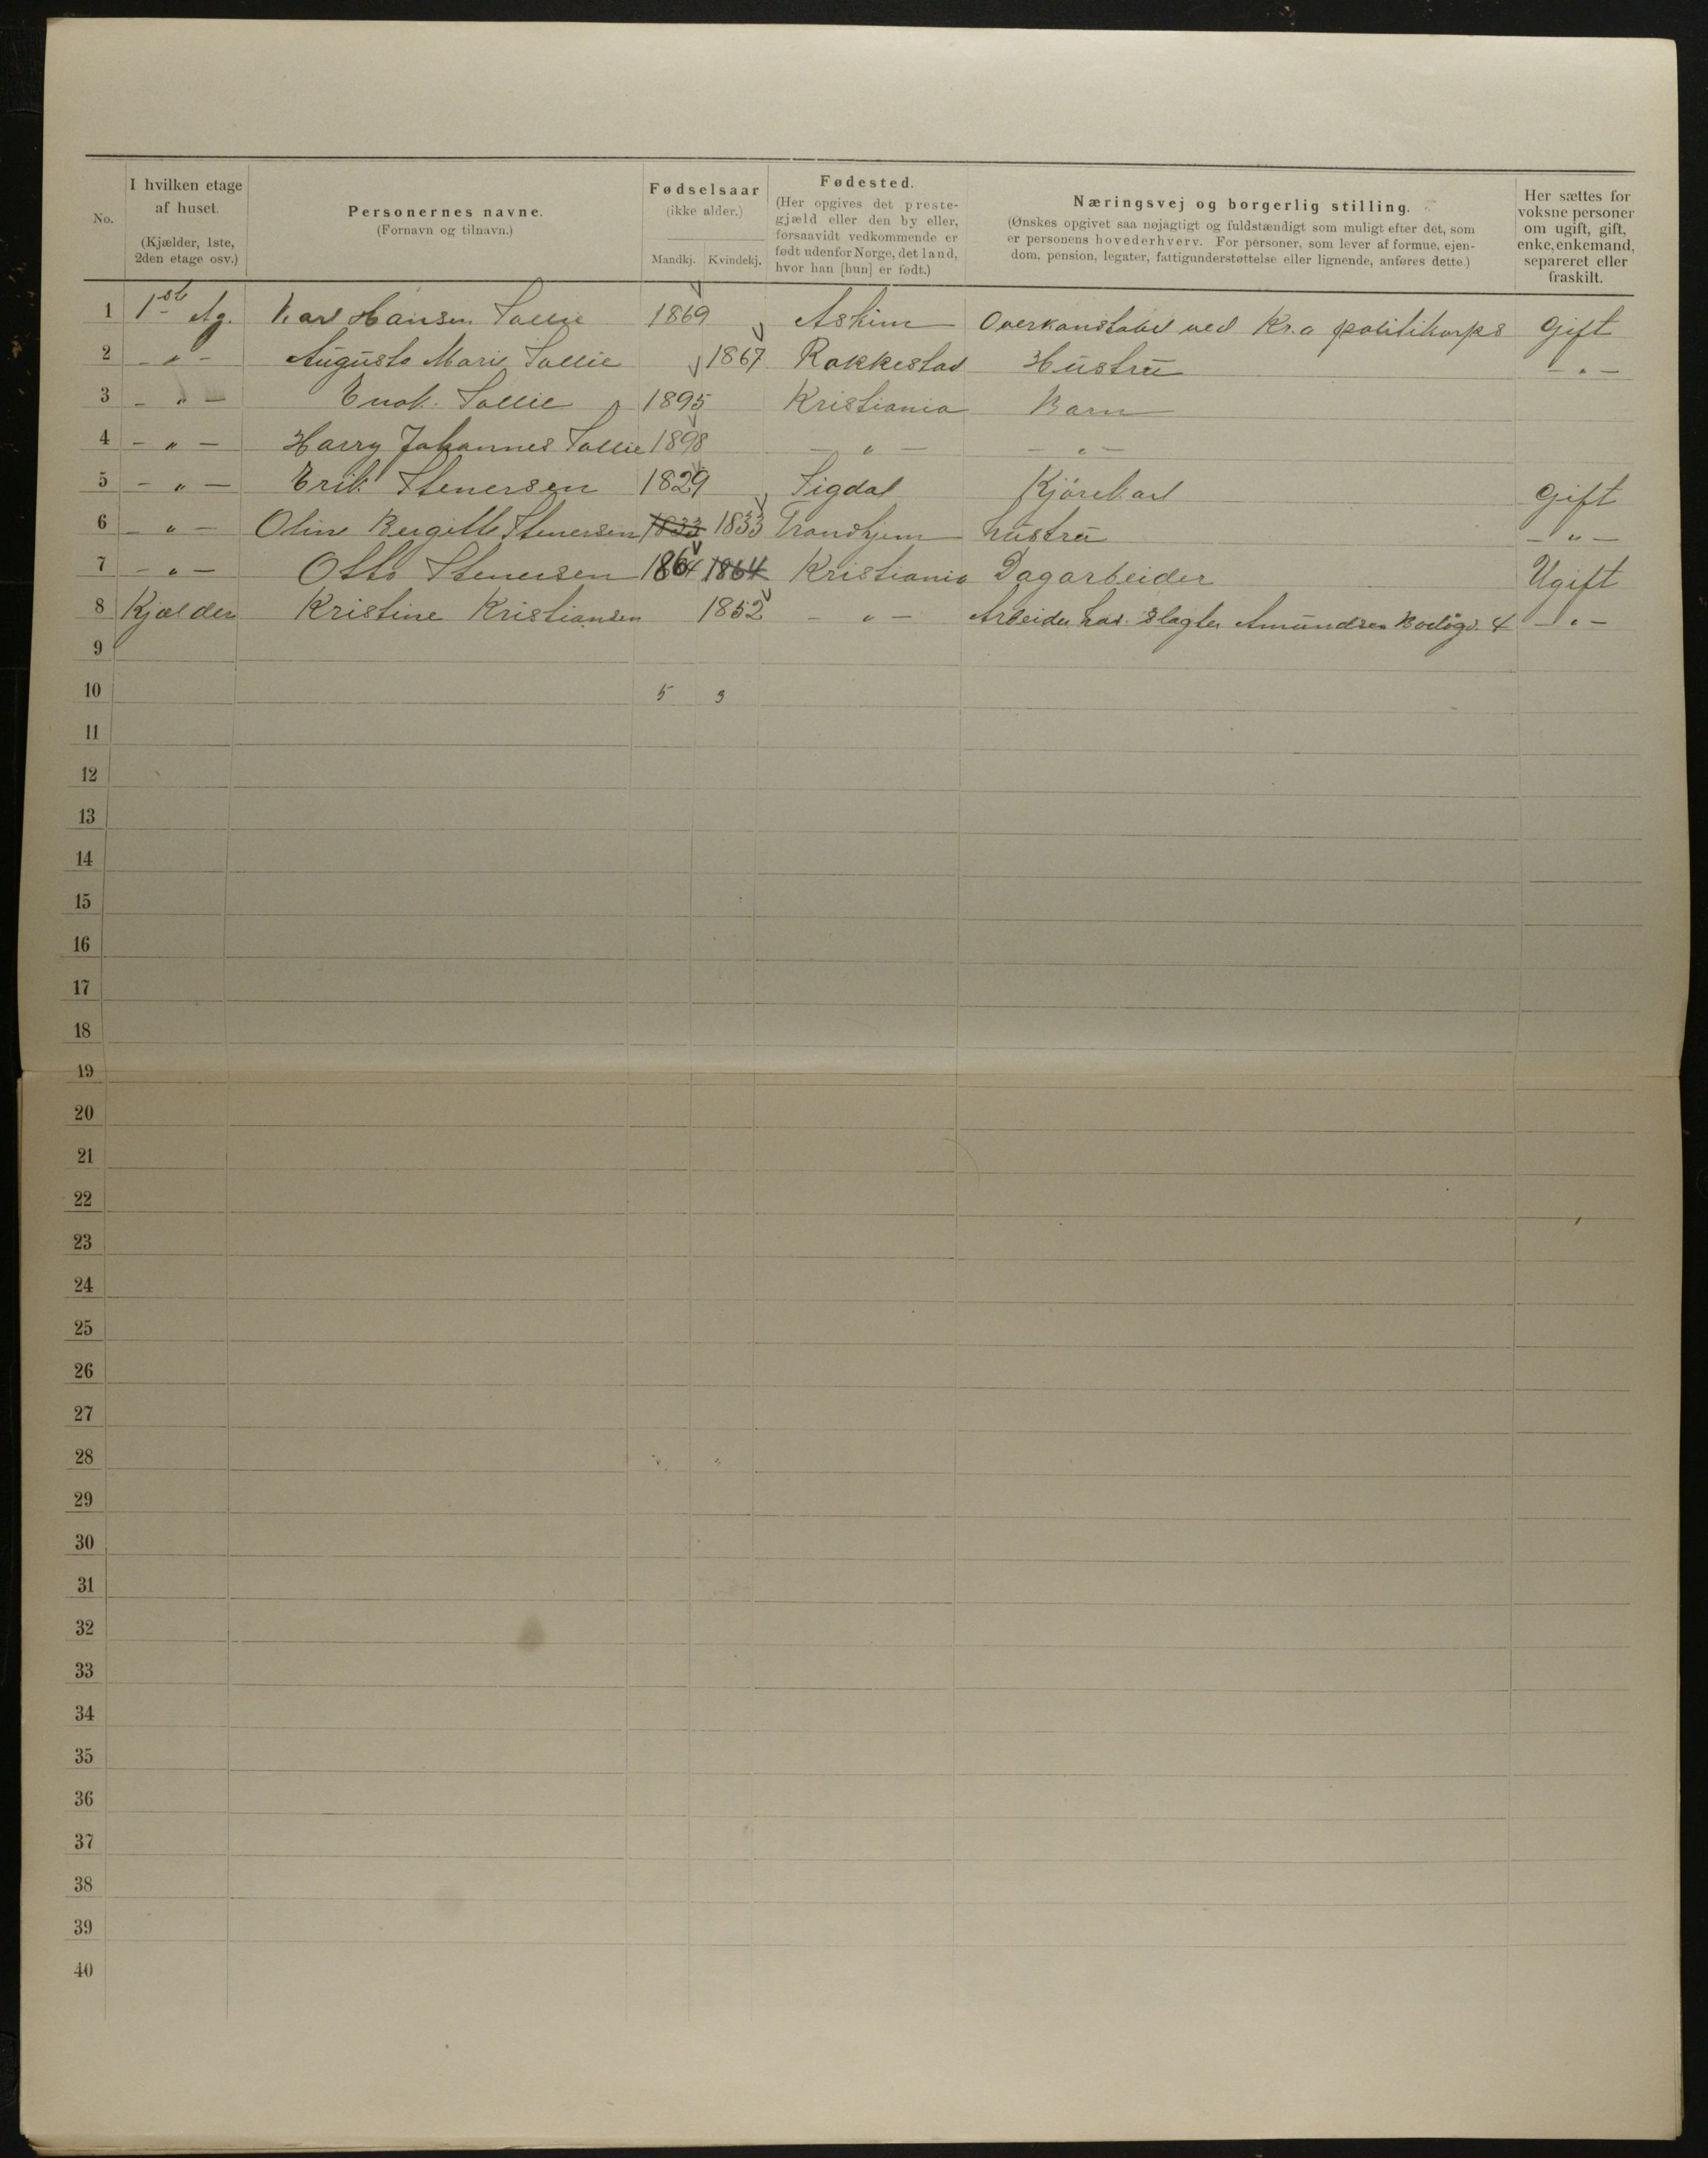 No.
I hvilken etage
af huset.
(Kjælder, 1ste,
2den etage osv.)
Personernes navne.
(Fornavn og tilnavn.)
Fødselsaar
(ikke alder.)
Mandkj. Kvindekj.
Fødested.
(Her opgives det preste-
gjæld eller den by eller,
forsaavidt vedkommende er
født udenfor Norge, det land,
hvor han [hun] er født.)
Næringsvej og borgerlig stilling.
(Ønskes opgivet saa nøjagtigt og fuldstændigt som muligt efter det, som
er personens hovederhverv. For personer, som lever af formue, ejen-
dom, pension, legater, fattigunderstøttelse eller lignende, anføres dette.)
Her sættes for
voksne personer
om ugift, gift,
enke, enkemand,
separeret eller
fraskilt.
1 1ste Karl Hansen Sollie 1869 Askim Overkonstabel ved Kr.a politikorps Gift
2 - " - Augusta Marie Sollie 1867 Rakkestad Hustru - " -
3 - " - Enok Sollie 1895 Kristiania Barn
4 - " - Harry Johannes Sollie 1898 - " - - " -
5 - " - Erik Stenersen 1829 Sigdal Kjørekarl Gift
6 - " - Oline Bergitte Stenersen 1833 1833 Trondhjem hustru - " -
7 - " - Otto Stenersen 1864 1864 Kristiania Dagarbeider Ugift
8 Kjælder Kristine Kristiansen 1852 - " - Arbeider hos Slagter Amundsen Bodøgd. 4 - " -
9
10 5 3
11
12
13
14
15
16
17
18
19
20
21
22
23
24
25
26
27
28
29
30
31
32
33
34
35
36
37
38
39
40